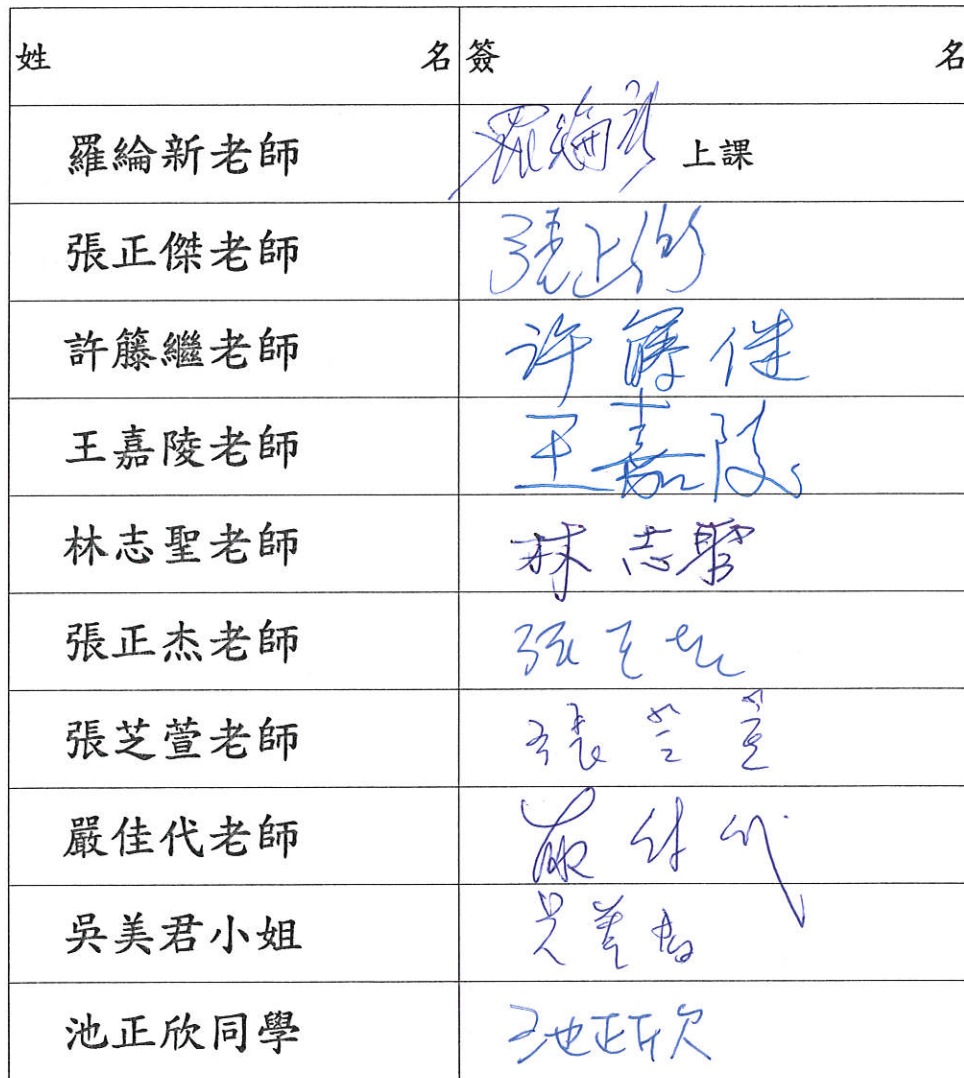 姓名 簽名
羅綸新老師 羅綸新 上課
張正傑老師 張正傑
許籐繼老師 许籐继
王嘉陵老師 王嘉陵
林志聖老師 林志聖
張正杰老師 張正杰
張芝萱老師 張芝萱
嚴佳代老師 嚴佳代
吳美君小姐 吳美君
池正欣同學 池正欣